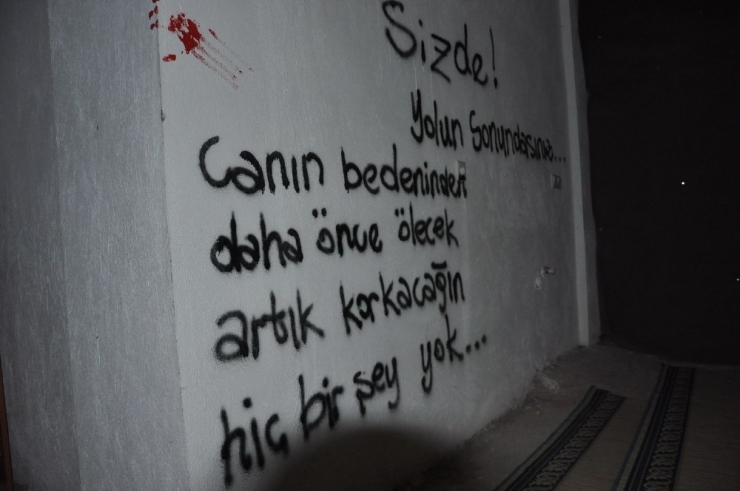 Sizde!
Yolun Sonundasınız...
Canın bedeninden
daha önce ölecek
artık korkacağın
hiç bir şey yok...